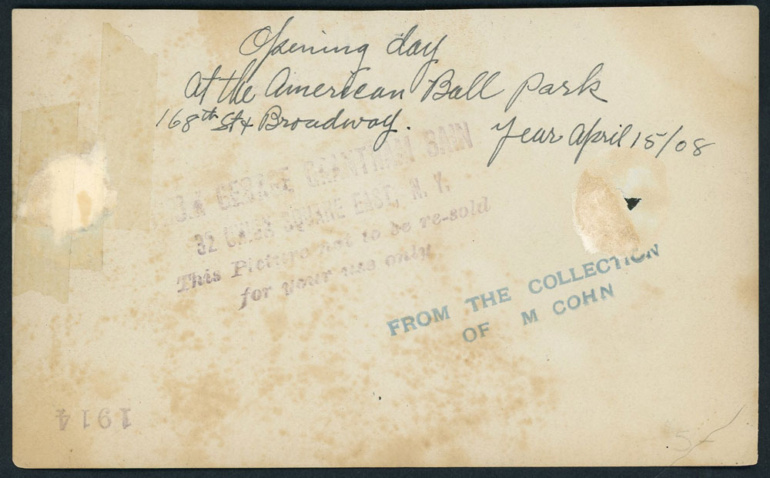 Opening day
at the American Ball Park
168th St & Broadway.
Year April 15/08
GEORGE GRANTHAM BAIN
32 UNION SQUARE EAST, N. Y.
This Picture not to be re-sold
for your use only
FROM THE COLLECTION
OF M COHN
1914